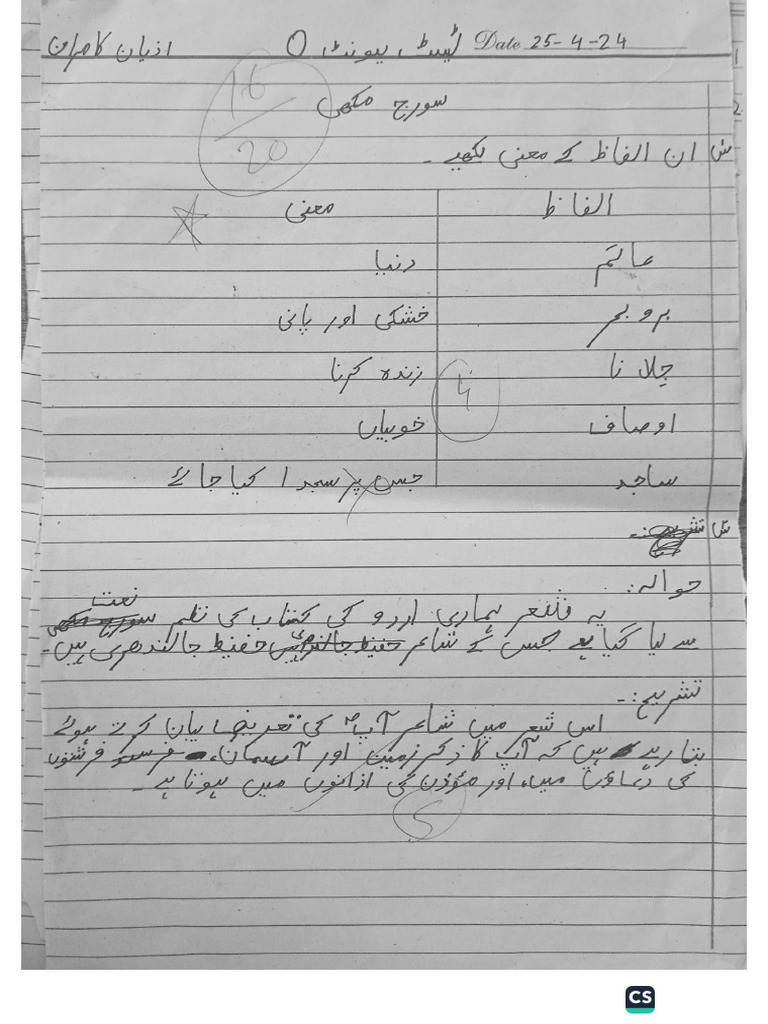 اذیان کامران ٹیسٹ یونٹ 0 Date 25-4-24
16/20
سورج مکھی
س ان الفاظ کے معنی لکھیے۔
الفاظ معنی
عالم دنیا
بروبحر خشکی اور پانی
جلانا زندہ کرنا
4
اوصاف خوبیاں
ساجد جس پر سجدا کیا جائے
س
حوالہ:
نعت
یہ شعر ہماری اردو کی کتاب کی نظم سورج مکھی
سے لیا گیا ہے جس کے شاعر حفیظ جالندھری ہیں حفیظ جالندھری ہیں۔
تشریح:۔
اس شعر میں شاعر آپؐ کی تعریف بیان کرتے ہوئے
بتا رہے ہیں کہ آپ کا ذکر زمین اور آسمان، فرشتوں
کی دعاؤں میں، اور مؤذن کی اذانوں میں ہوتا ہے۔
5
CS